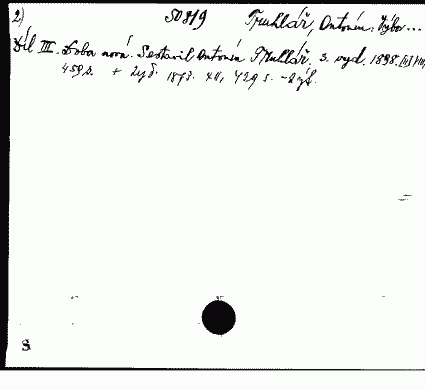 2) 50819 Truhlář, Antonín: Výbor...
Díl III. Doba nová. Sestavil Antonín Truhlář. 3. vyd. 1898.
459 s. + 2 vyd. 1893. XII, 429 s.
S